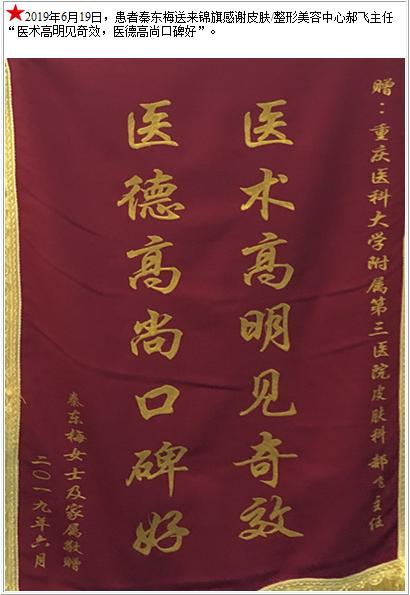 ★2019年6月19日，患者秦东梅送来锦旗感谢皮肤/整形美容中心郝飞主任
“医术高明见奇效，医德高尚口碑好”。
赠：重庆医科大学附属第三医院皮肤科郝飞主任
医术高明见奇效
医德高尚口碑好
秦东梅女士及家属敬赠
二〇一九年六月